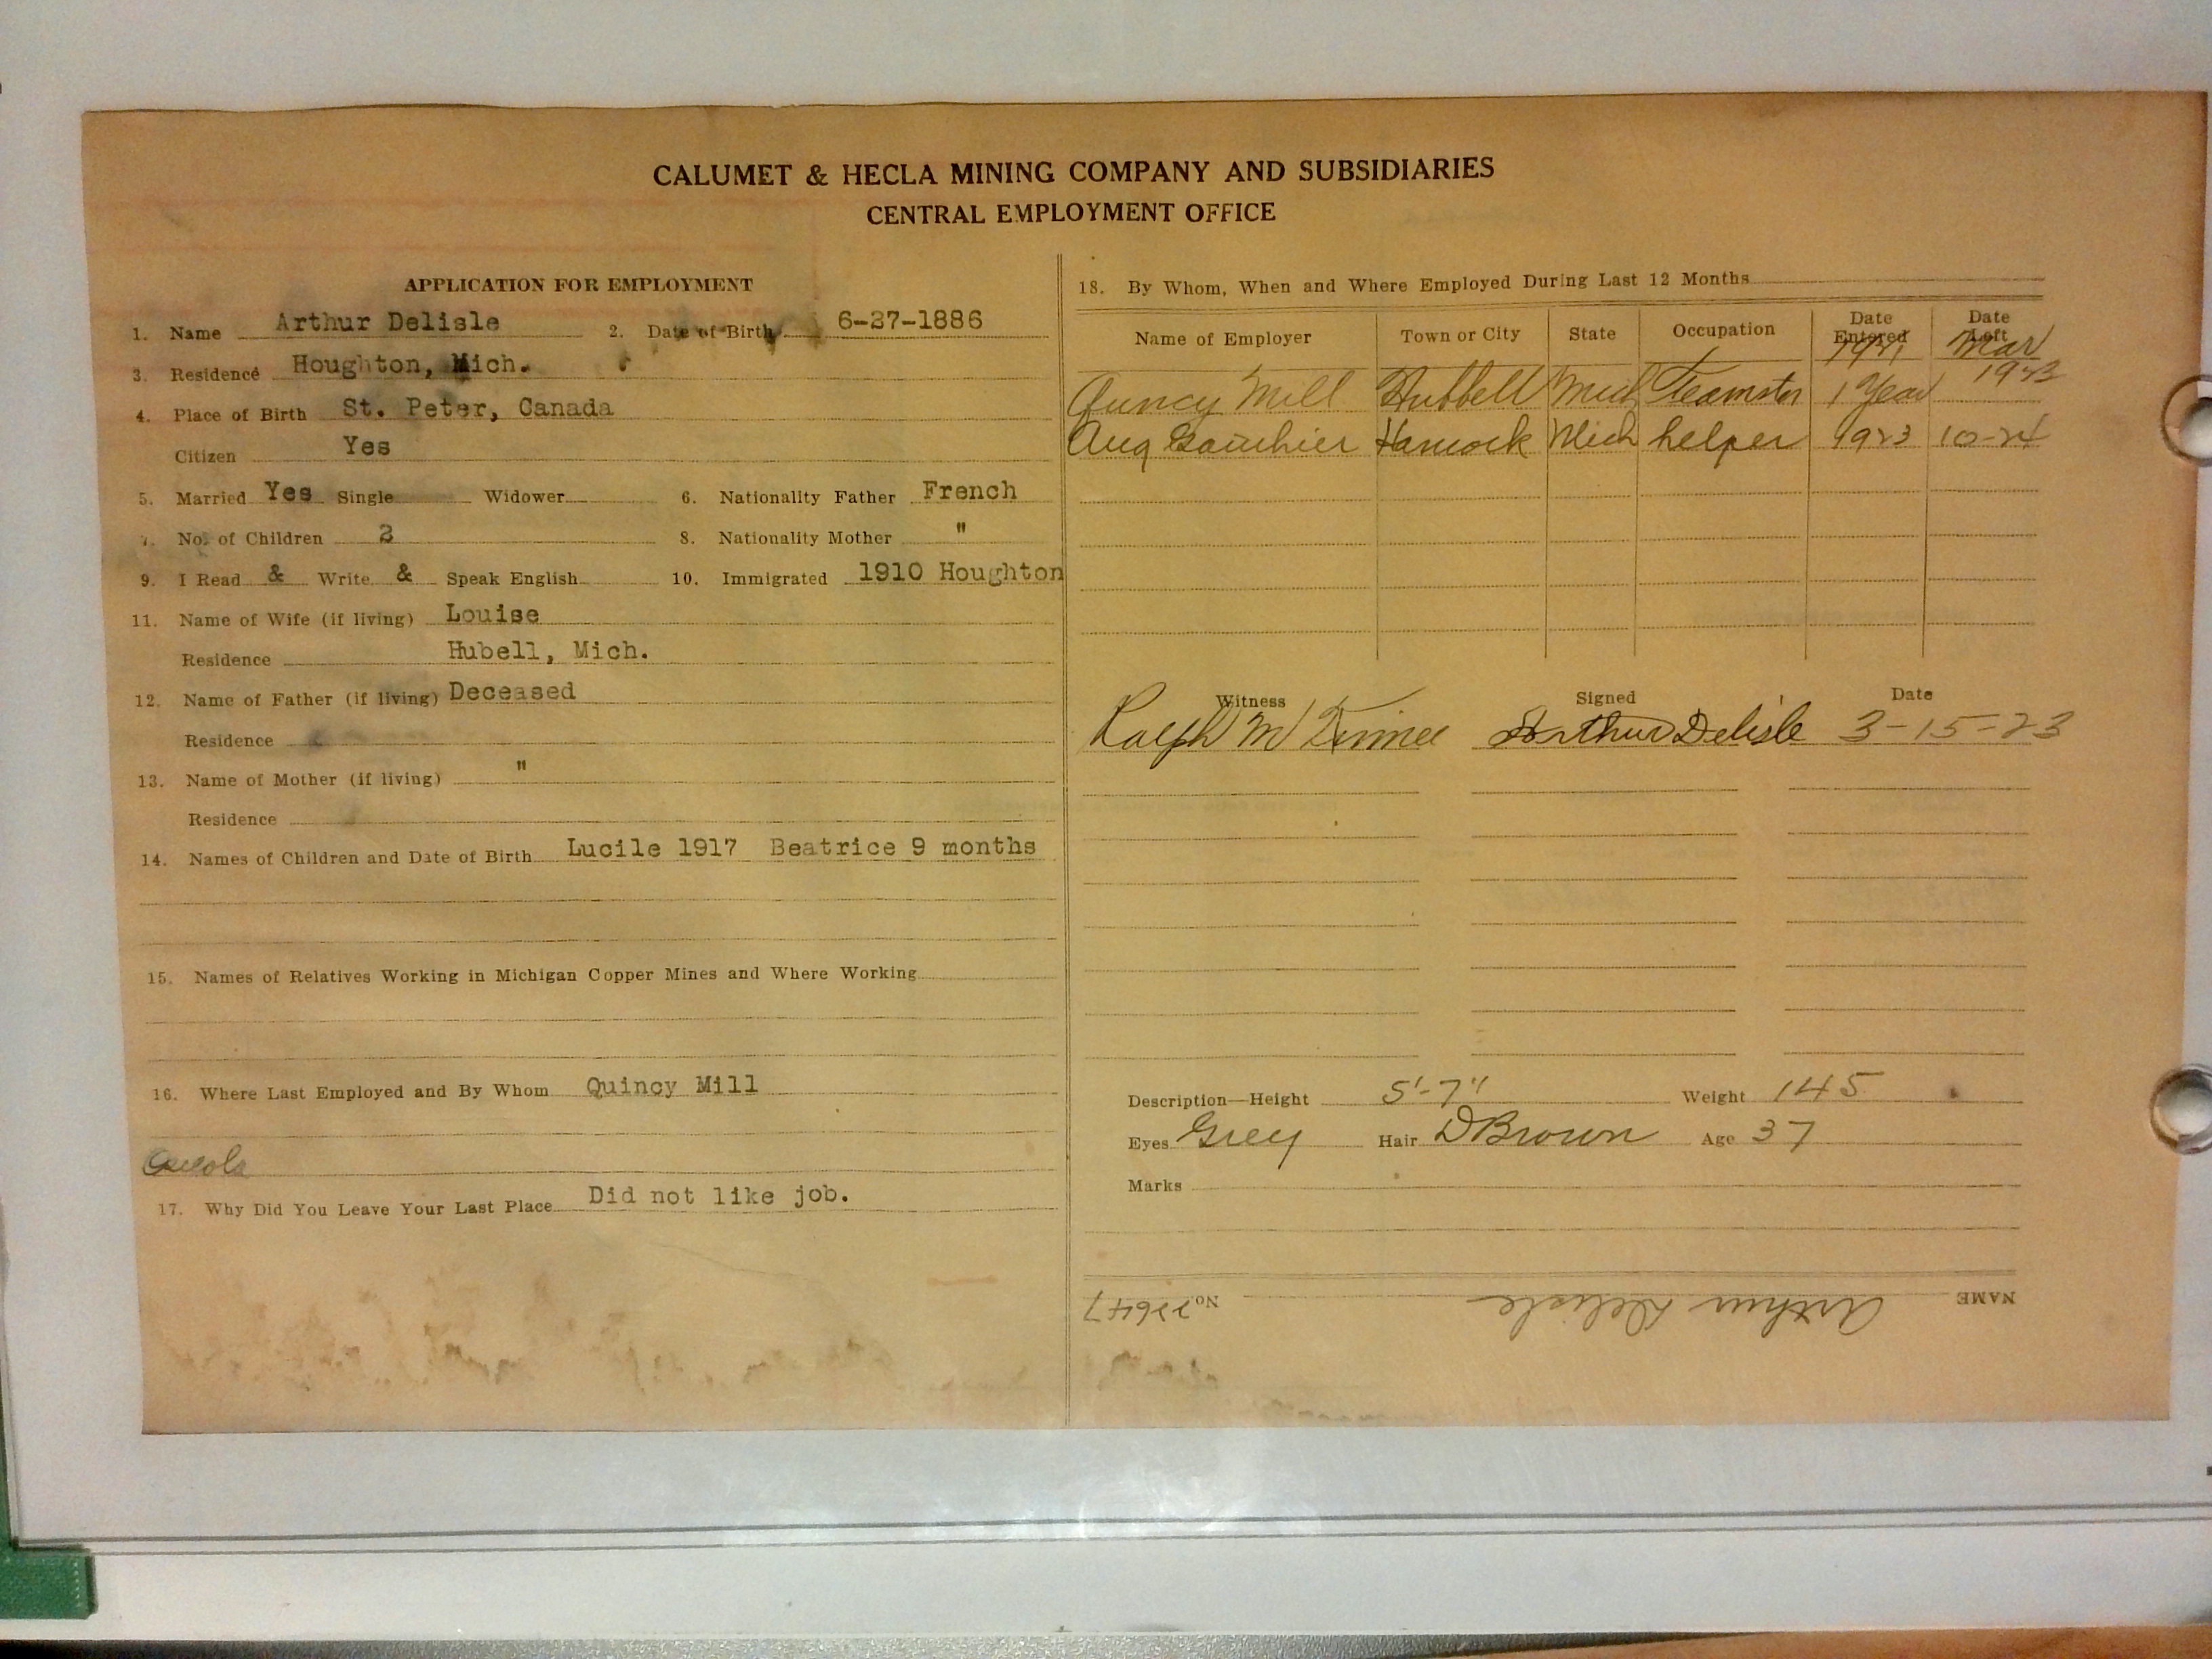 CALUMET & HECLA MINING COMPANY AND SUBSIDIARIES
CENTRAL EMPLOYMENT OFFICE
APPLICATION FOR EMPLOYMENT
1. Name Arthur Delisle 2. Date of Birth 6-27-1886
3. Residence Houghton, Mich.
4. Place of Birth St. Peter, Canada
Citizen Yes
5. Married Yes Single Widower 6. Nationality Father French
7. No. of Children 2 8. Nationality Mother "
9. I Read & Write & Speak English 10. Immigrated 1910 Houghton
11. Name of Wife (if living) Louise
Residence Hubell, Mich.
12. Name of Father (if living) Deceased
Residence
13. Name of Mother (if living) "
Residence
14. Names of Children and Date of Birth Lucile 1917 Beatrice 9 months
15. Names of Relatives Working in Michigan Copper Mines and Where Working
16. Where Last Employed and By Whom Quincy Mill
17. Why Did You Leave Your Last Place Did not like job.
18. By Whom, When and Where Employed During Last 12 Months
Name of Employer Town or City State Occupation Date Entered Date Left
Quincy Mill Hubbell Mich Teamster 1921 1 Year Mar 1923
Aug Hancock Mich helper 1923 10-24
Witness Signed Date
Ralph M Arthur Delisle 3-15-23
Description—Height 5'-7" Weight 145
Eyes Grey Hair D Brown Age 37
Marks
NAME Arthur Delisle No. 22647